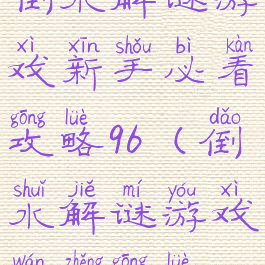 倒水解谜游
xì xīn shǒu bì kàn
戏新手必看
gōng lüè dǎo
攻略96（倒
shuǐ jiě mí yóu xì
水解谜游戏
wán zhěng gōng lüè